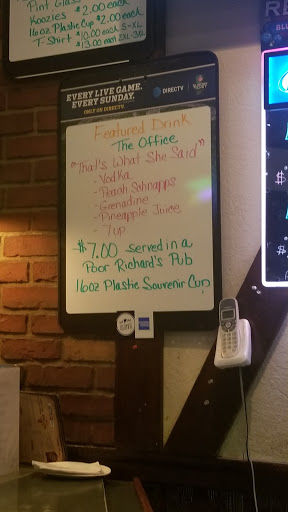 Pint Glass
Koozies $2.00 each
16oz Plastic Cup $2.00 each
T-Shirt $10.00 each S-XL
$13.00 each 2XL-3XL
EVERY LIVE GAME.
EVERY SUNDAY.
ONLY ON DIRECTV.
DIRECTV
Featured Drink
The Office
"That's What She Said"
- Vodka
- Peach Schnapps
- Grenadine
- Pineapple Juice
- 7up
$7.00 served in a
Poor Richard's Pub
16oz Plastic Souvenir Cup
RE
BLU